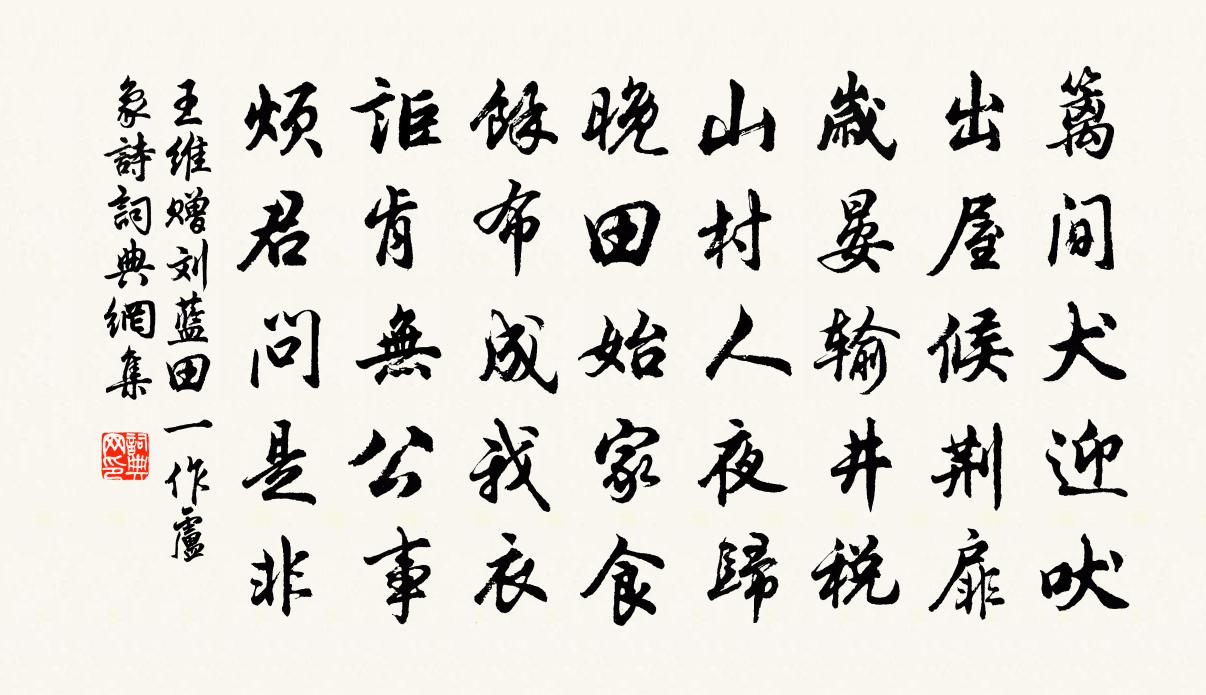 篱間犬迎吠
出屋候荆扉
歲晏输井税
山村人夜歸
晚田始家食
餘布成我衣
詎肯無公事
烦君問是非
王维赠刘蓝田一作盧
象詩詞典網集
詞典网印